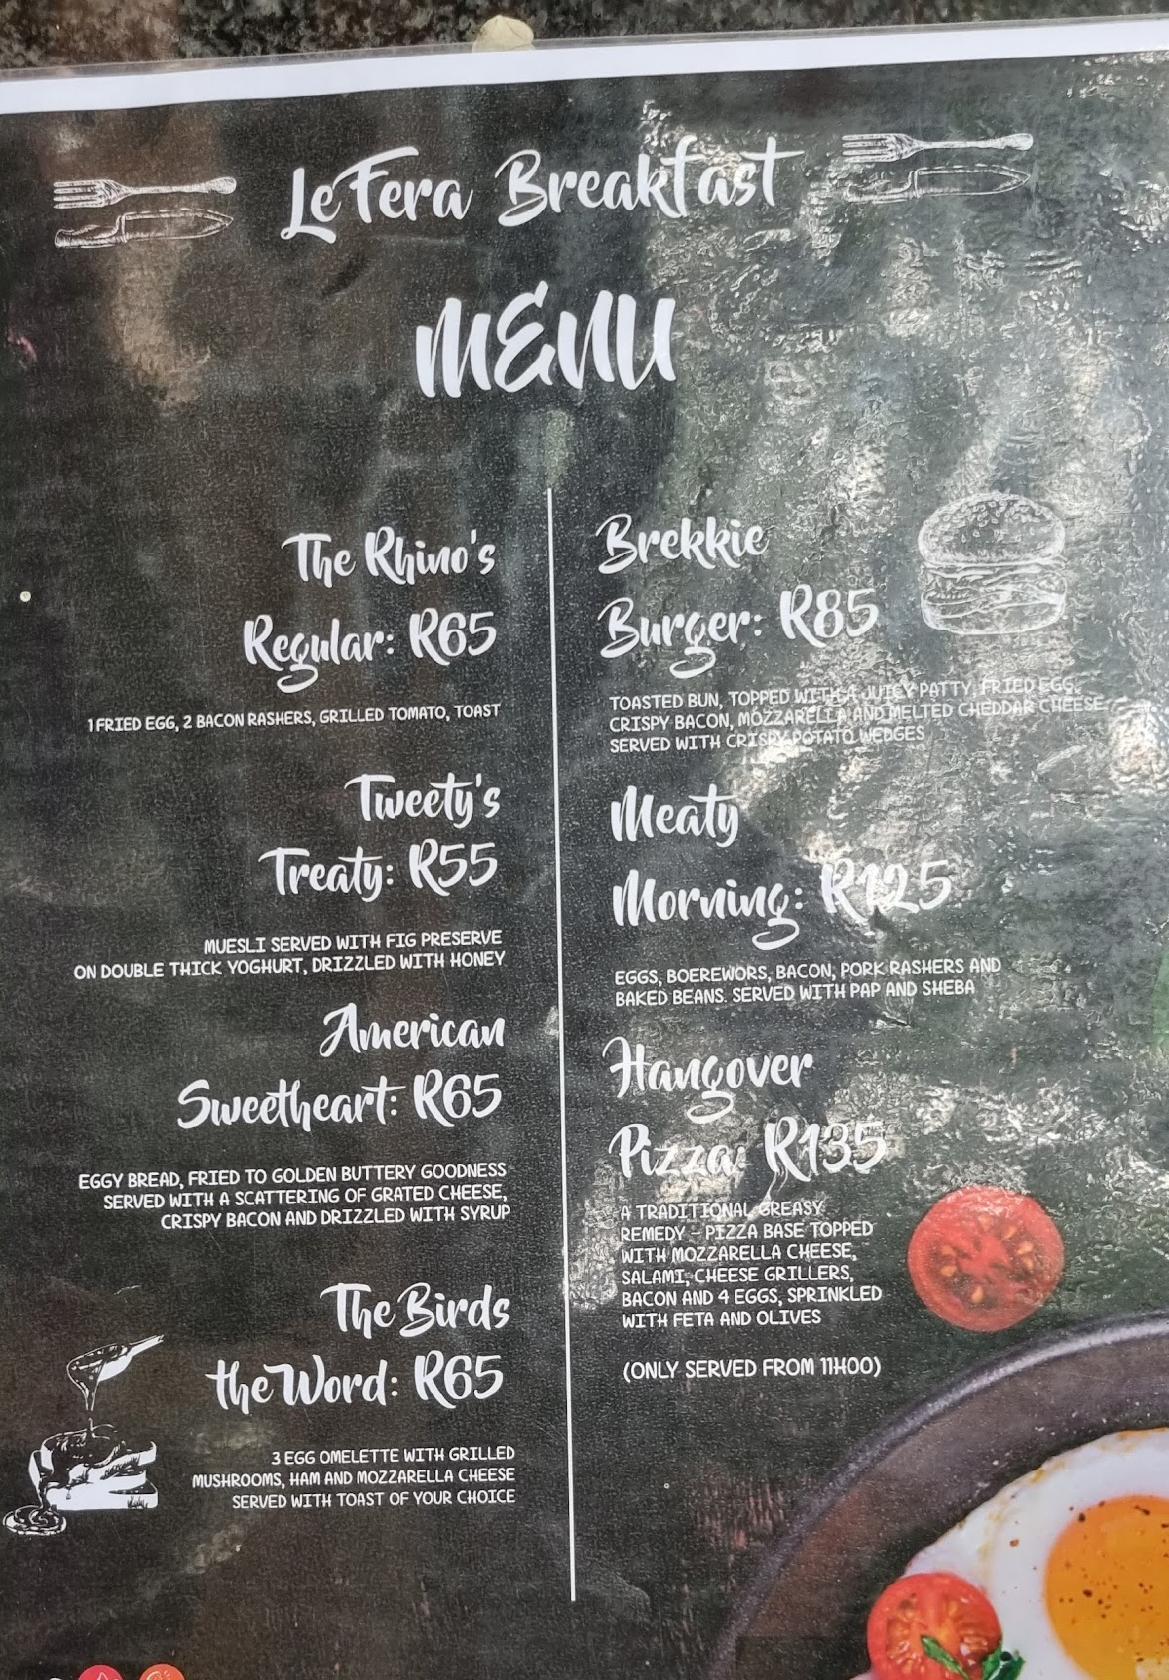 Le Fera Breakfast
MENU
The Rhino's
Regular: R65
1 FRIED EGG, 2 BACON RASHERS, GRILLED TOMATO, TOAST
Tweety's
Treaty: R55
MUESLI SERVED WITH FIG PRESERVE
ON DOUBLE THICK YOGHURT, DRIZZLED WITH HONEY
American
Sweetheart: R65
EGGY BREAD, FRIED TO GOLDEN BUTTERY GOODNESS
SERVED WITH A SCATTERING OF GRATED CHEESE,
CRISPY BACON AND DRIZZLED WITH SYRUP
The Birds
the Word: R65
3 EGG OMELETTE WITH GRILLED
MUSHROOMS, HAM AND MOZZARELLA CHEESE
SERVED WITH TOAST OF YOUR CHOICE
Brekkie
Burger: R85
TOASTED BUN, TOPPED WITH A JUICY PATTY, FRIED EGG,
CRISPY BACON, MOZZARELLA AND MELTED CHEDDAR CHEESE,
SERVED WITH CRISPY POTATO WEDGES
Meaty
Morning: R125
EGGS, BOEREWORS, BACON, PORK RASHERS AND
BAKED BEANS. SERVED WITH PAP AND SHEBA
Hangover
Pizza: R135
A TRADITIONAL GREASY
REMEDY - PIZZA BASE TOPPED
WITH MOZZARELLA CHEESE,
SALAMI, CHEESE GRILLERS,
BACON AND 4 EGGS, SPRINKLED
WITH FETA AND OLIVES
(ONLY SERVED FROM 11H00)